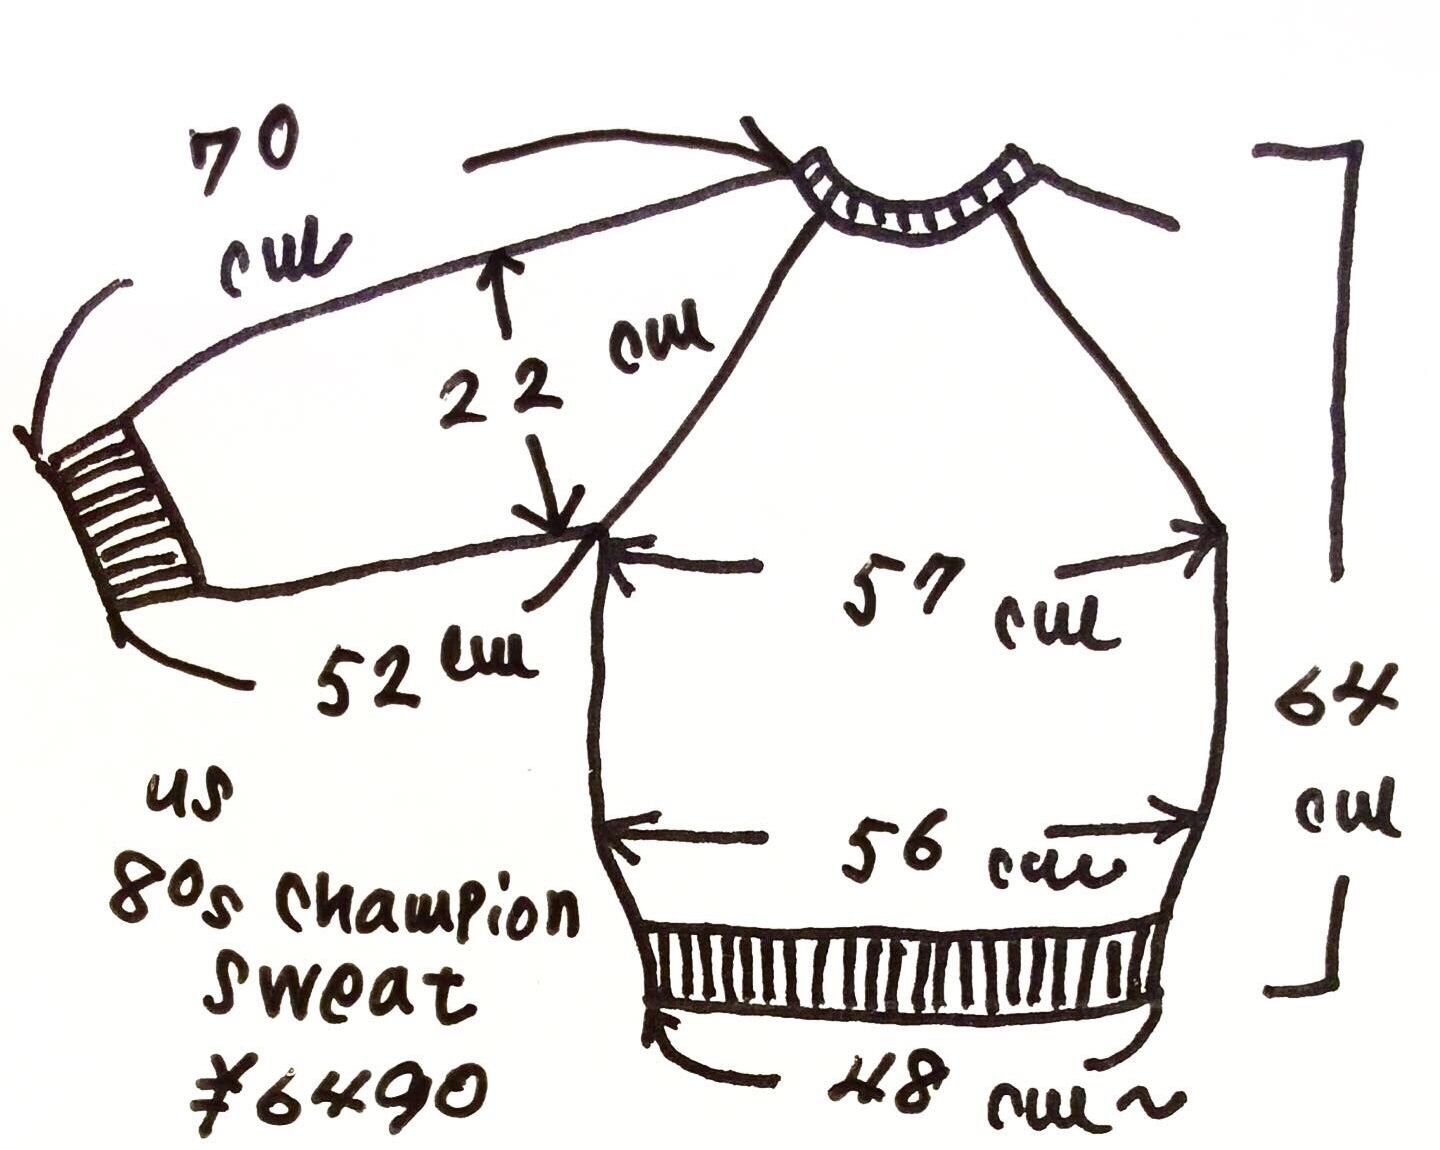 70
cm
22 cm
57
cm
52 cm
64
cm
56 cm
us
80s Champion
sweat
¥6490
48 cm~